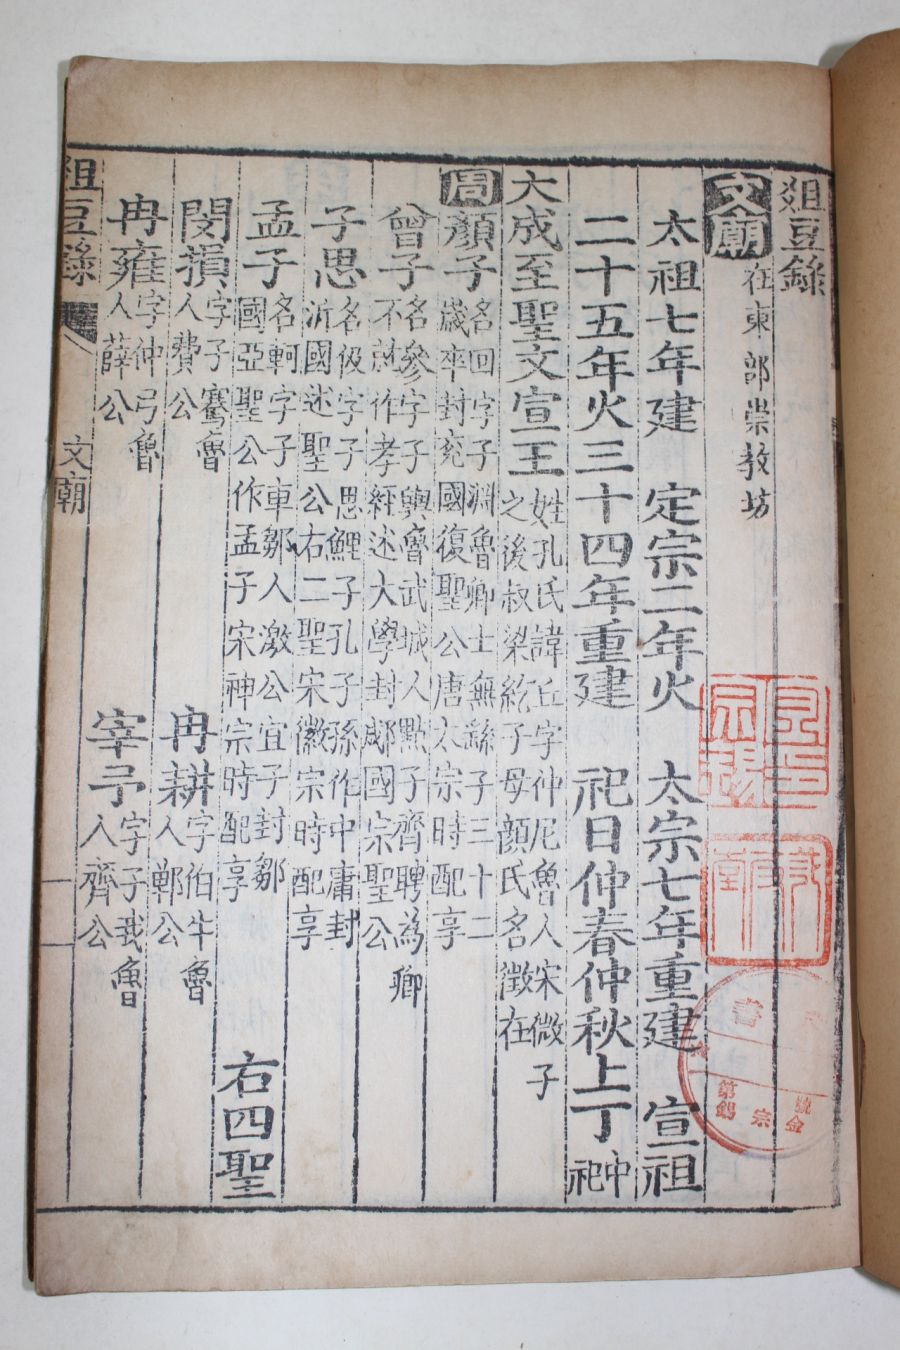 俎豆錄
文廟在東部崇教坊
太祖七年建 定宗二年火 太宗七年重建 宣祖
二十五年火三十四年重建 祀日仲春仲秋上丁中祀
大成至聖文宣王姓孔氏諱丘字仲尼魯人宋微子
之後叔梁紇子母顏氏名徵在
周
顏子名回字子淵魯卿士無繇子三十二
歲卒封兗國復聖公唐太宗時配享
曾子名參字子輿魯武城人點子齊聘為卿
不就作孝經述大學封郕國宗聖公
子思名伋字子思鯉子孔子孫作中庸封
沂國述聖公右二聖宋徽宗時配享
孟子名軻字子車鄒人激公宜子封鄒
國亞聖公作孟子宋神宗時配享
右四聖
閔損字子騫魯
人費公
冉耕字伯牛魯
人鄆公
冉雍字仲弓魯
人薛公
宰予字子我魯
人齊公
俎豆錄
文廟
一
書
第
號
金
宗
錫